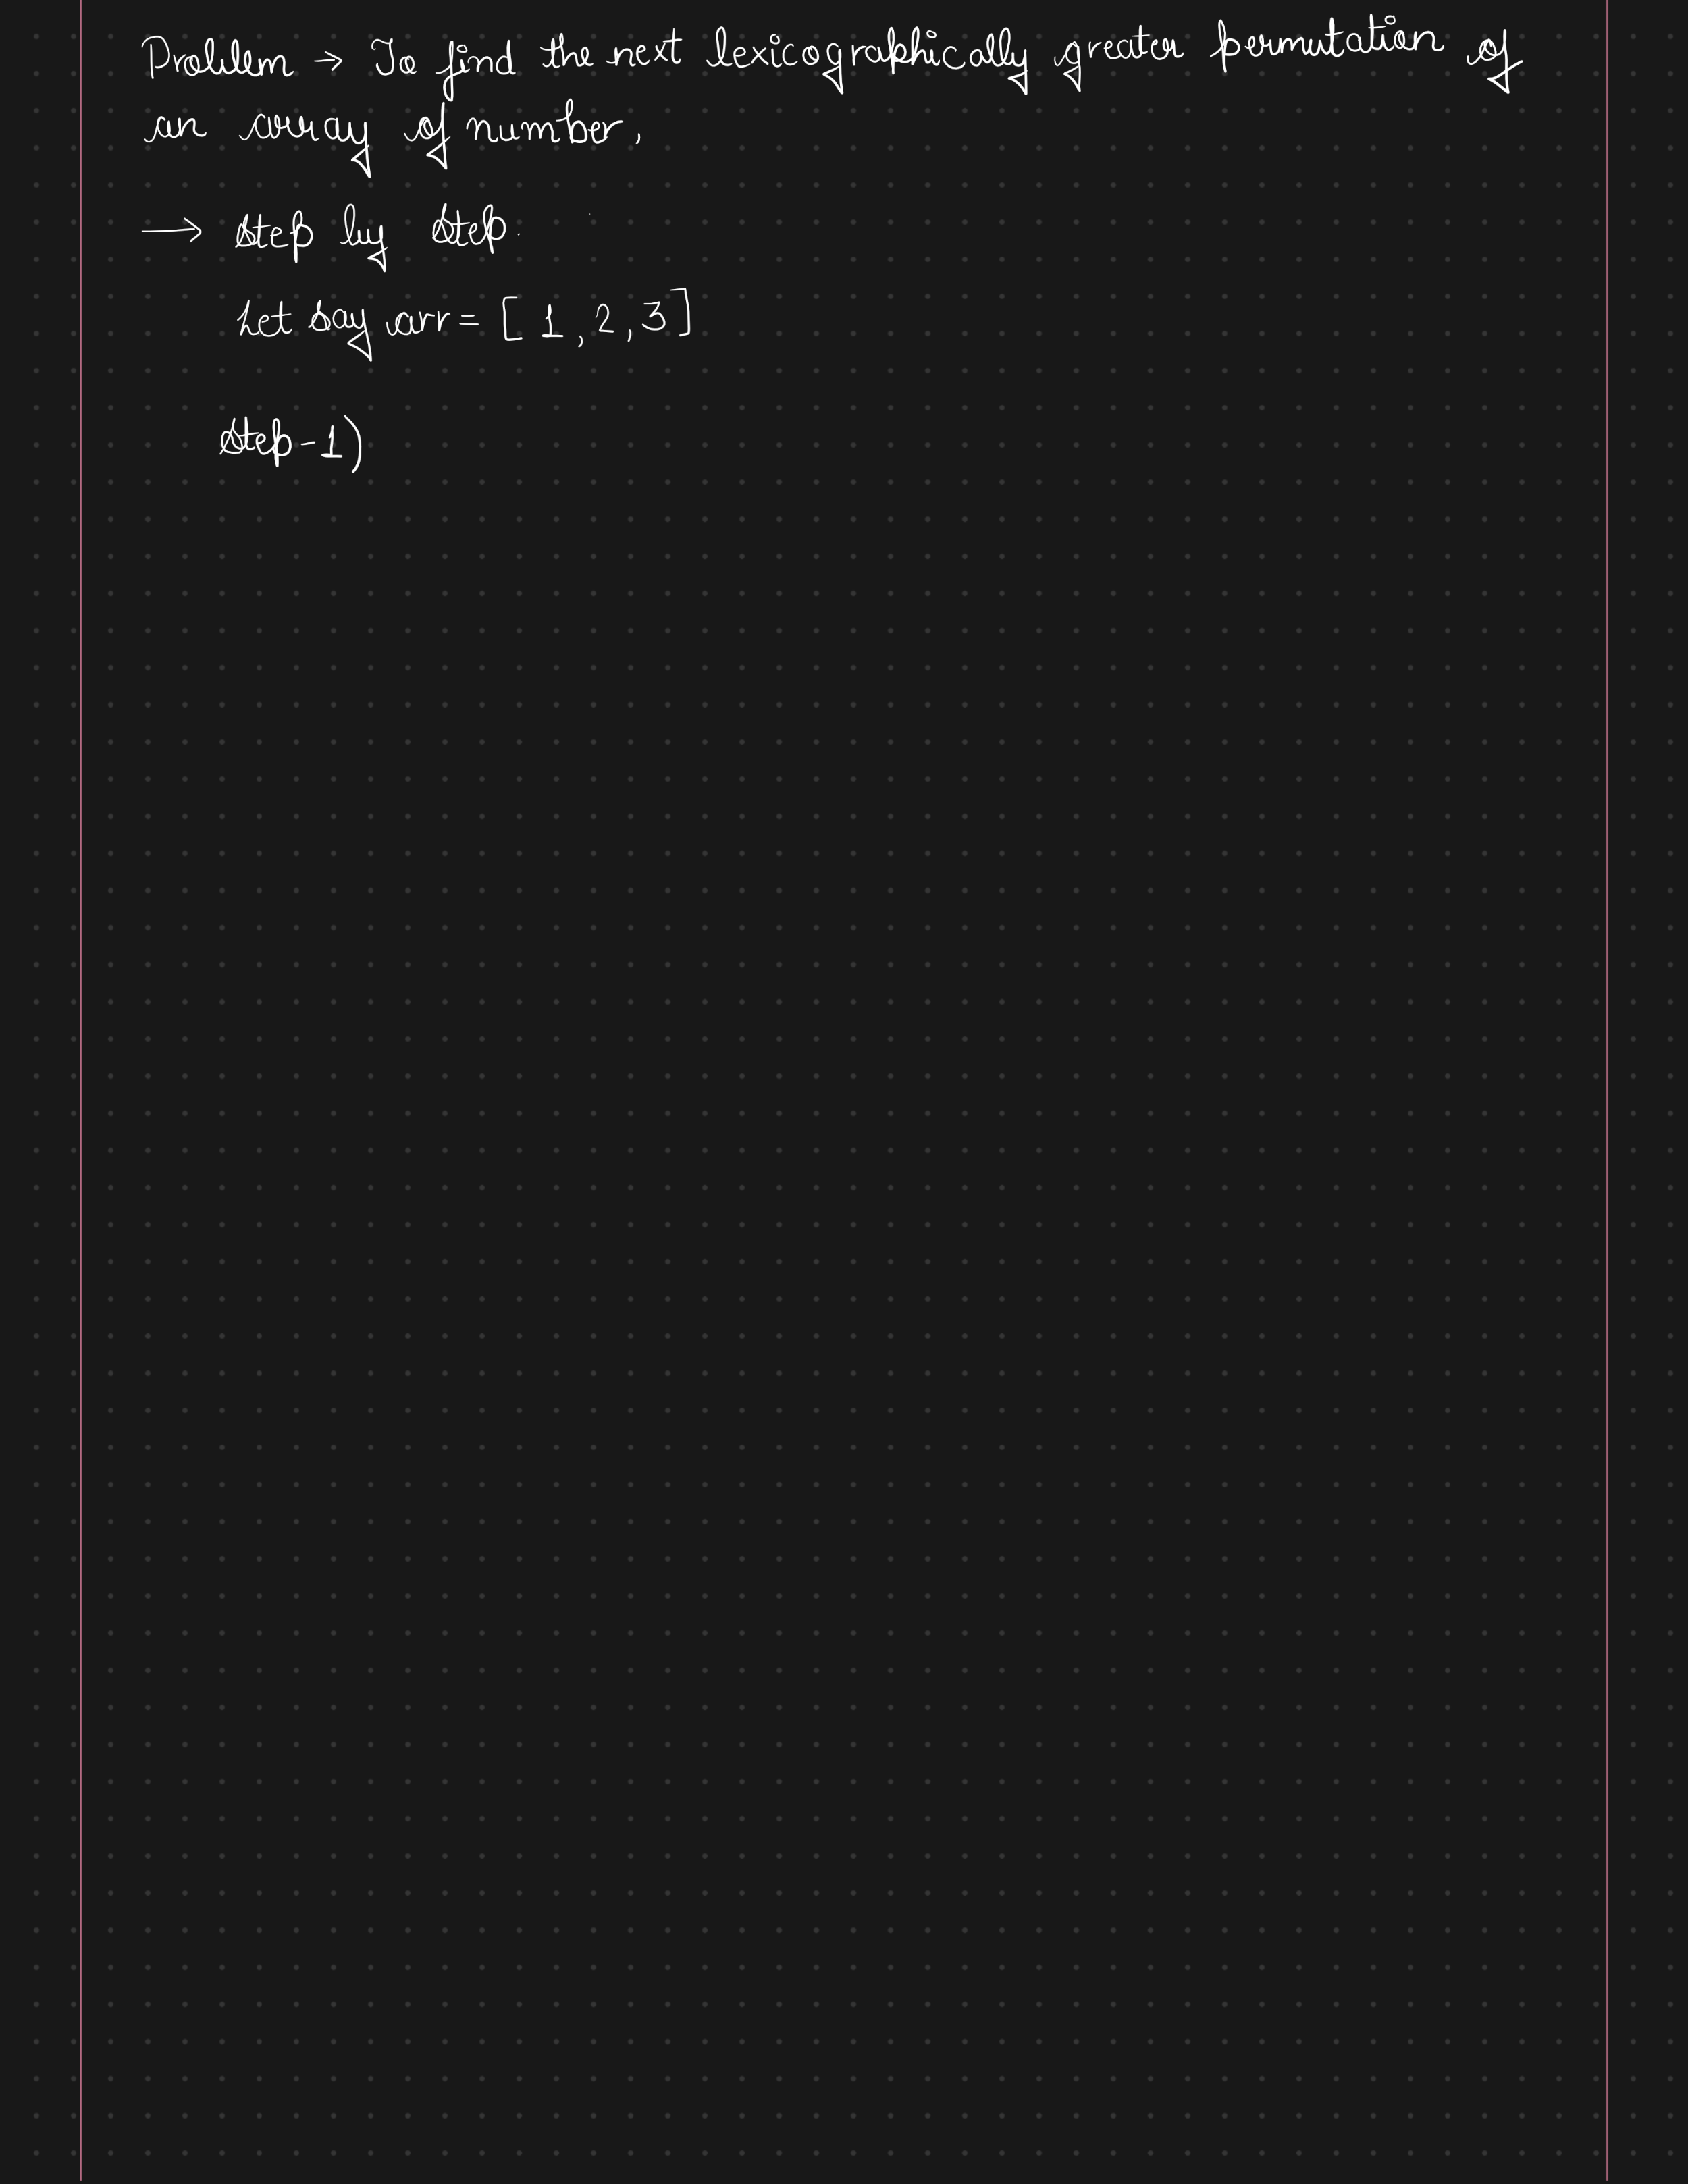 Problem → To find the next lexicographically greater permutation of
an array of number,
→ Step by Step.
Let Say arr = [ 1, 2, 3]
Step-1)